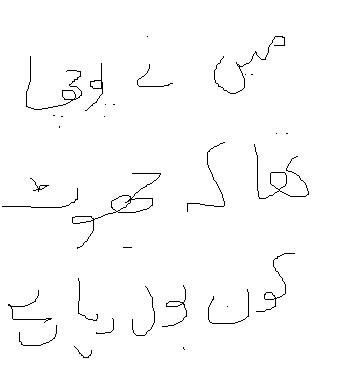 میں نے پوچھا
تھا کہ جھوٹ
کون بول رہا ہے